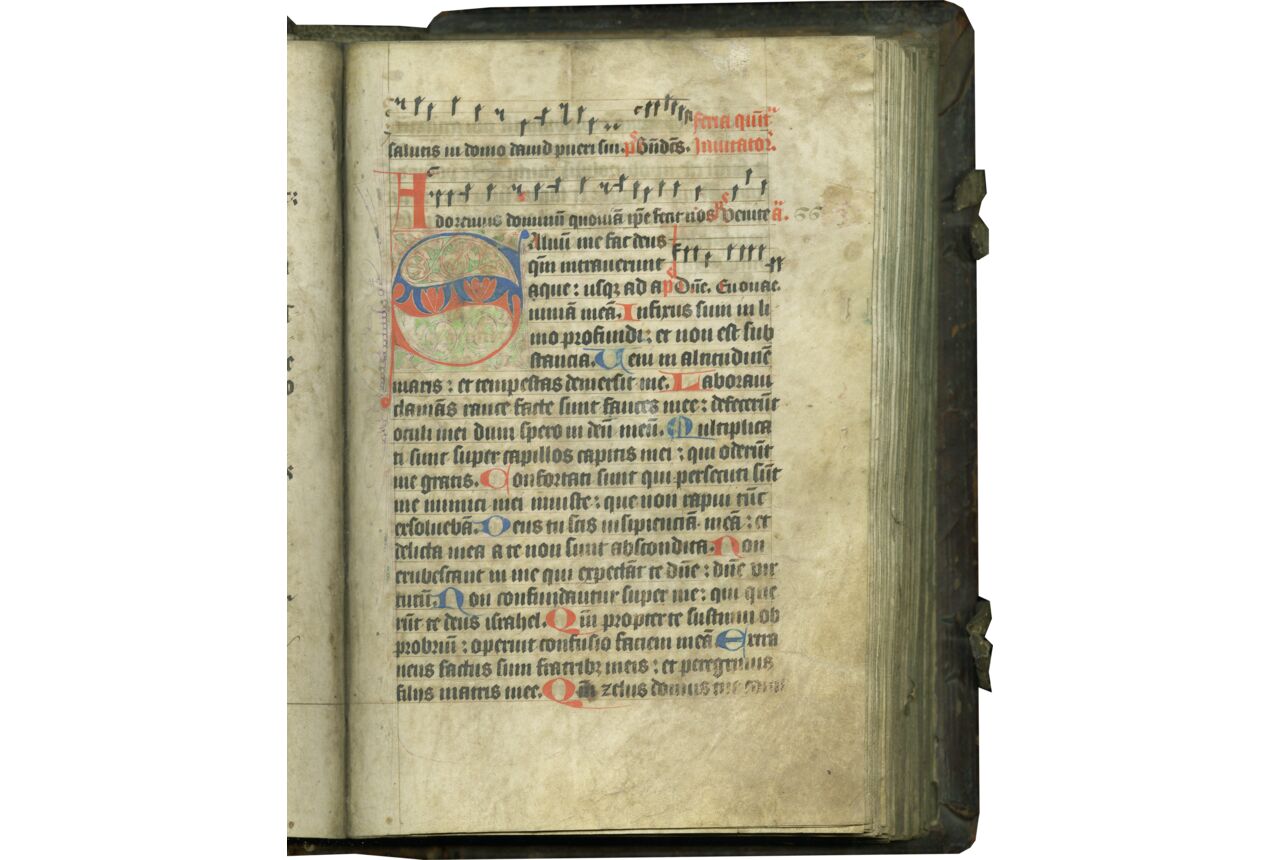 feria quīt
salutis in domo dauid pueri sui. ps Bn̄dcs. Inuitator.
Adoremus dominū quoniā ip̄e fecit nos. ps Uenite a. 66
Saluū me fac deus
qm̄ intrauerunt
aque : usq; ad a ps Dn̄e. Euouae.
nimā meā. Infixus sum in li
mo profundi : et non est sub
stancia. Ueni in altitudinē
maris : et tempestas demersit me. Laboraui
clamās rauce facte sunt fauces mee : defecerūt
oculi mei dum spero in deū meū. Multiplica
ti sunt super capillos capitis mei : qui oderūt
me gratis. Confortati sunt qui persecuti sūt
me inimici mei iniuste : que non rapui tūc
exsoluebā. Deus tu scis insipienciā meā : et
delicta mea a te non sunt abscondita. Non
erubescant in me qui expectāt te dn̄e : dn̄e vir
tutū. Non confundantur super me : qui que
rūt te deus israhel. Qm̄ propter te sustinui ob
probriū : operuit confusio faciem meā Extra
neus factus sum fratribz meis : et peregrinus
filijs matris mee. Qm̄ zelus domus tue